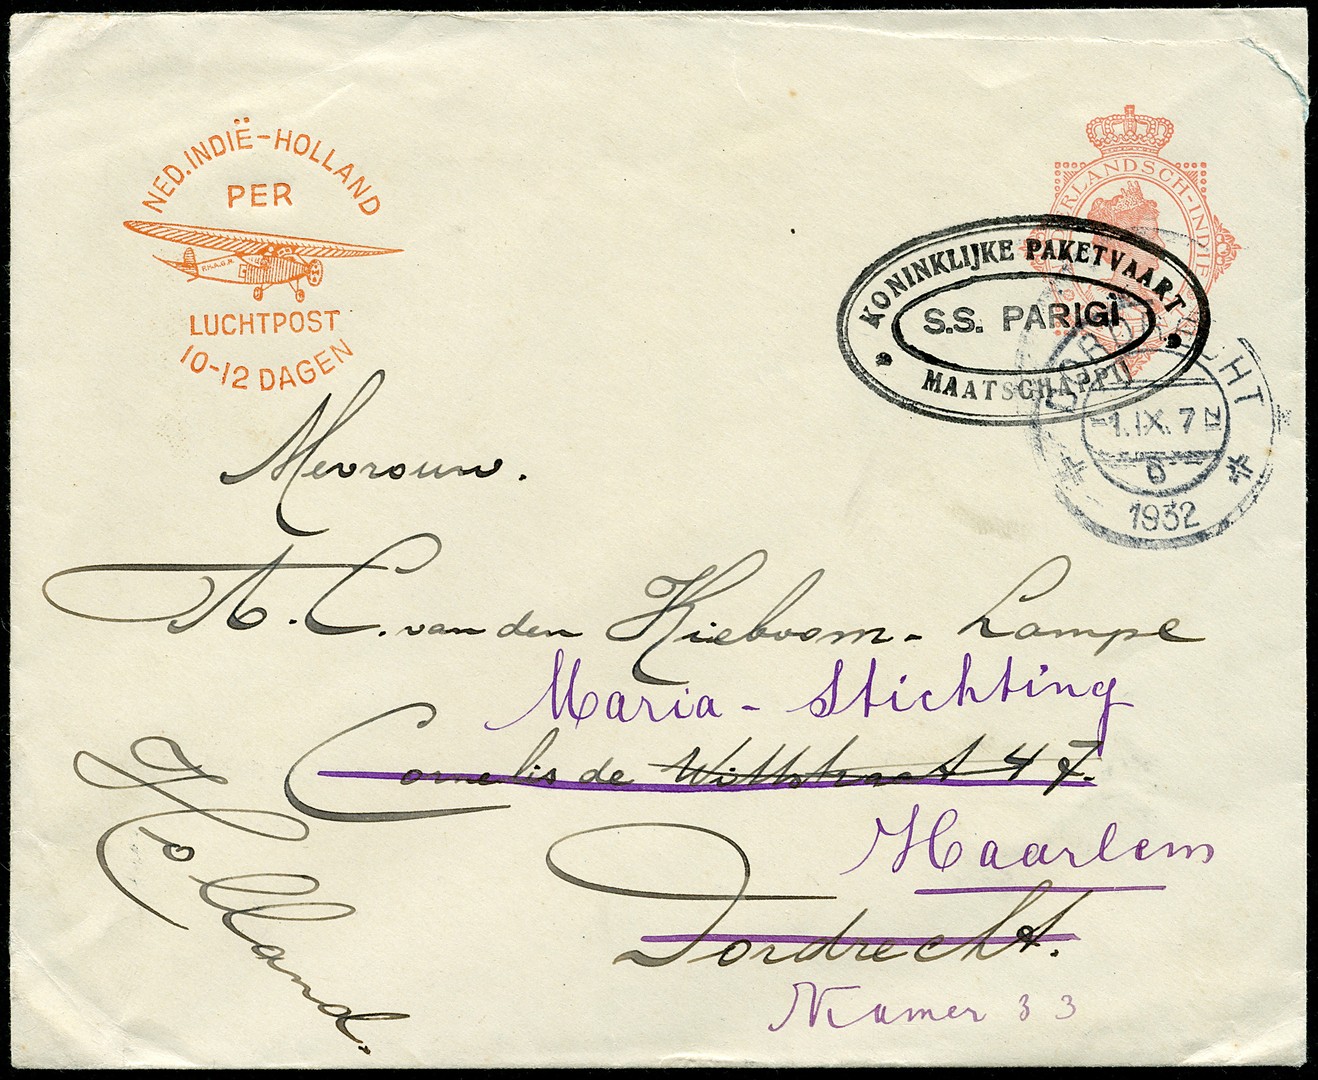 NED. INDIË-HOLLAND
PER
LUCHTPOST
10-12 DAGEN
KONINKLIJKE PAKETVAART
S.S. PARIGI
MAATSCHAPPIJ
DORDRECHT
1.IX. 7
1932
Mevrouw.
A. C. van den Kieboom - Lampe
Maria - Stichting
Cornelis de Wittstraat 47.
Haarlem
Dordrecht.
Kamer 33
Holland.